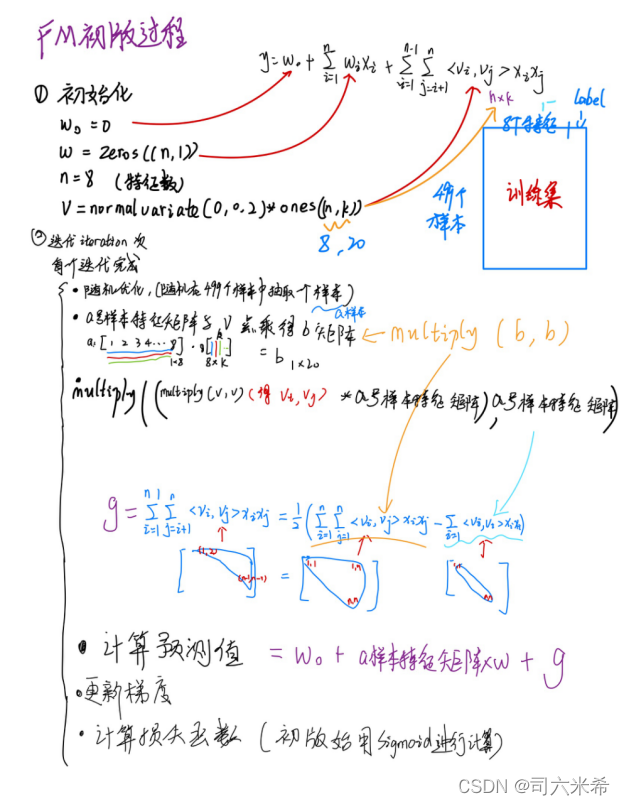 FM初版过程
y = w₀ + Σ_{i=1}^{n} wᵢxᵢ + Σ_{i=1}^{n-1} Σ_{j=i+1}^{n} <vᵢ, vⱼ> xᵢxⱼ
n×k
① 初始化
w₀ = 0
w = zeros((n,1))
n = 8 (特征数)
V = normalvariate(0, 0.2) * ones((n,k))
8, 20
8个特征, Label
499个
样本
训练集
② 迭代 iteration 次
每个迭代完成
• 随机优化, (随机在499个样本中抽取一个样本)
a样本
• a号样本特征矩阵与 V 点乘得 b 矩阵 ← multiply (b, b)
a, [1 2 3 4 … 8] · 8[ ] = b
k
1×8 8×k 1×20
multiply((multiply(v,v) (得 vᵢ,vⱼ) * a号样本特征矩阵), a号样本特征矩阵)
g = Σ_{i=1}^{n-1} Σ_{j=i+1}^{n} <vᵢ,vⱼ> xᵢxⱼ = ½ (Σ_{i=1}^{n} Σ_{j=1}^{n} <vᵢ,vⱼ> xᵢxⱼ − Σ_{i=1} <vᵢ,vᵢ> xᵢxᵢ)
[ (1,2) ] = [ 1,1 1,n n,n ] [ 1,1 n,n ]
• 计算预测值 = w₀ + a样本特征矩阵×w + g
• 更新梯度
• 计算损失函数 (初版始用sigmoid进行计算)
CSDN @司六米希